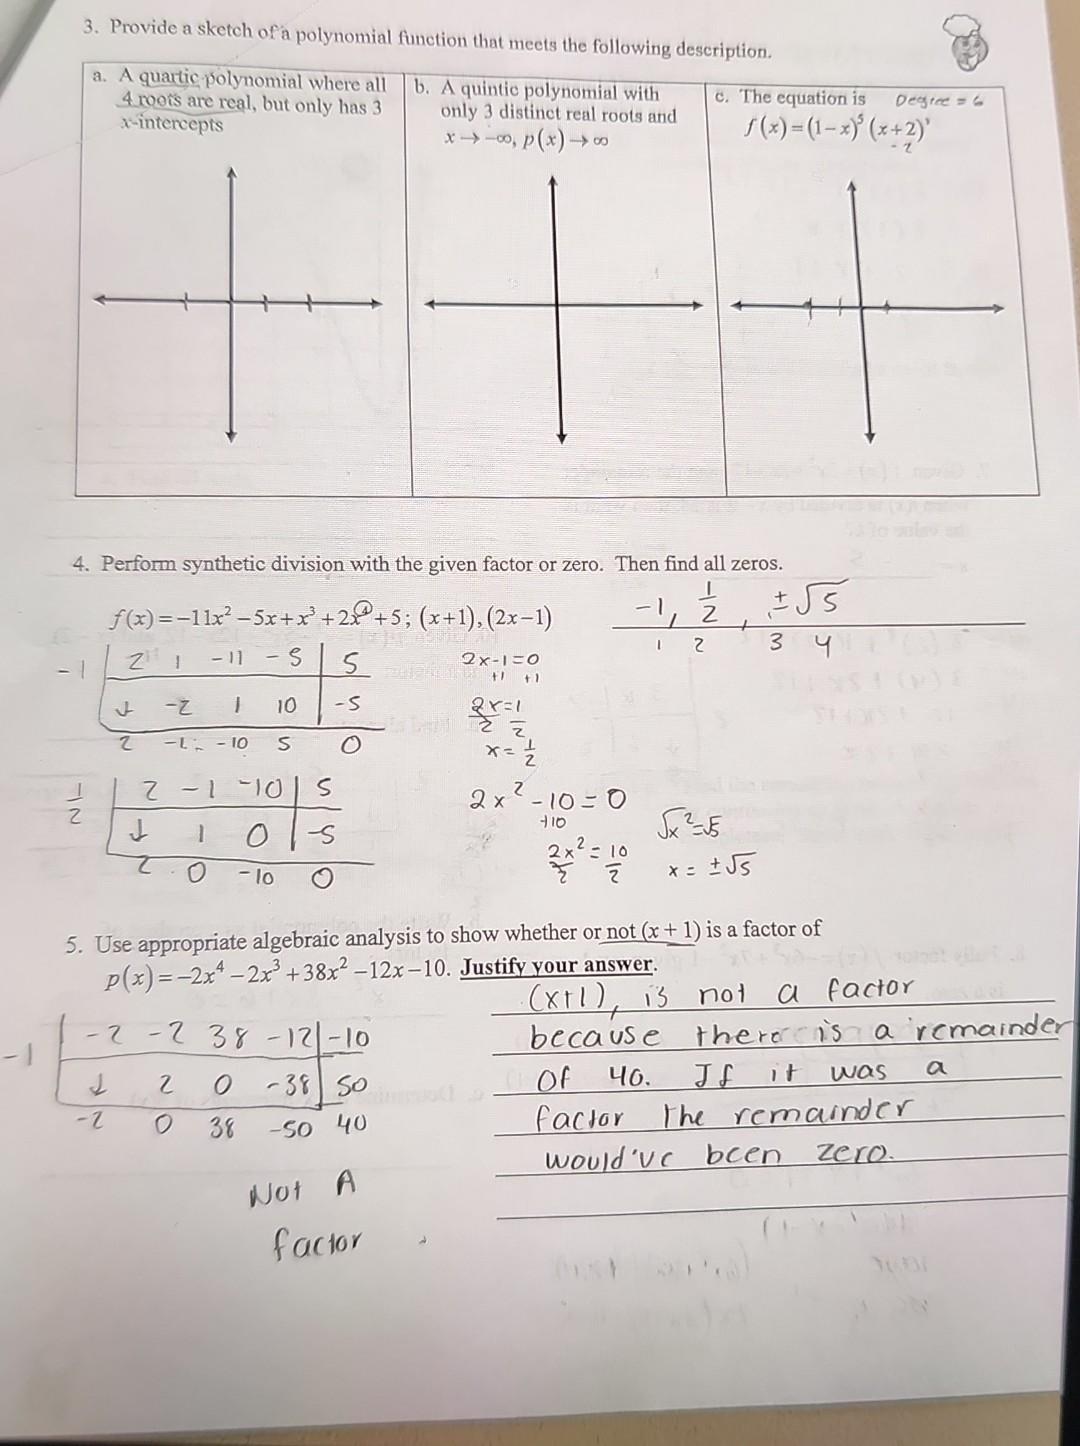 3. Provide a sketch of a polynomial function that meets the following description.
a. A quartic polynomial where all
4 roots are real, but only has 3
x-intercepts
b. A quintic polynomial with
only 3 distinct real roots and
x→-∞, p(x)→∞
c. The equation is Degree = 6
f(x)=(1-x)⁵(x+2)¹
-2
4. Perform synthetic division with the given factor or zero. Then find all zeros.
f(x)=-11x²-5x+x³+2x⁴+5; (x+1),(2x-1)
-1, 1/2, ±√5
1 2 3 4
-1 | 2 1 -11 -5 | 5
↓ -2 1 10 | -5
2 -1 -10 5 0
2x-1=0
+1 +1
2x=1
2 2
x=1/2
1/2 | 2 -1 -10 | 5
↓ 1 0 | -5
2 0 -10 0
2x²-10=0
+10
2x²=10
2 2
√x²=√5
x=±√5
5. Use appropriate algebraic analysis to show whether or not (x+1) is a factor of
p(x)=-2x⁴-2x³+38x²-12x-10. Justify your answer.
-1 | -2 -2 38 -12 | -10
↓ 2 0 -38 | 50
-2 0 38 -50 40
Not A
factor
(x+1), is not a factor
because there is a remainder
of 40. If it was a
factor the remainder
would've been zero.